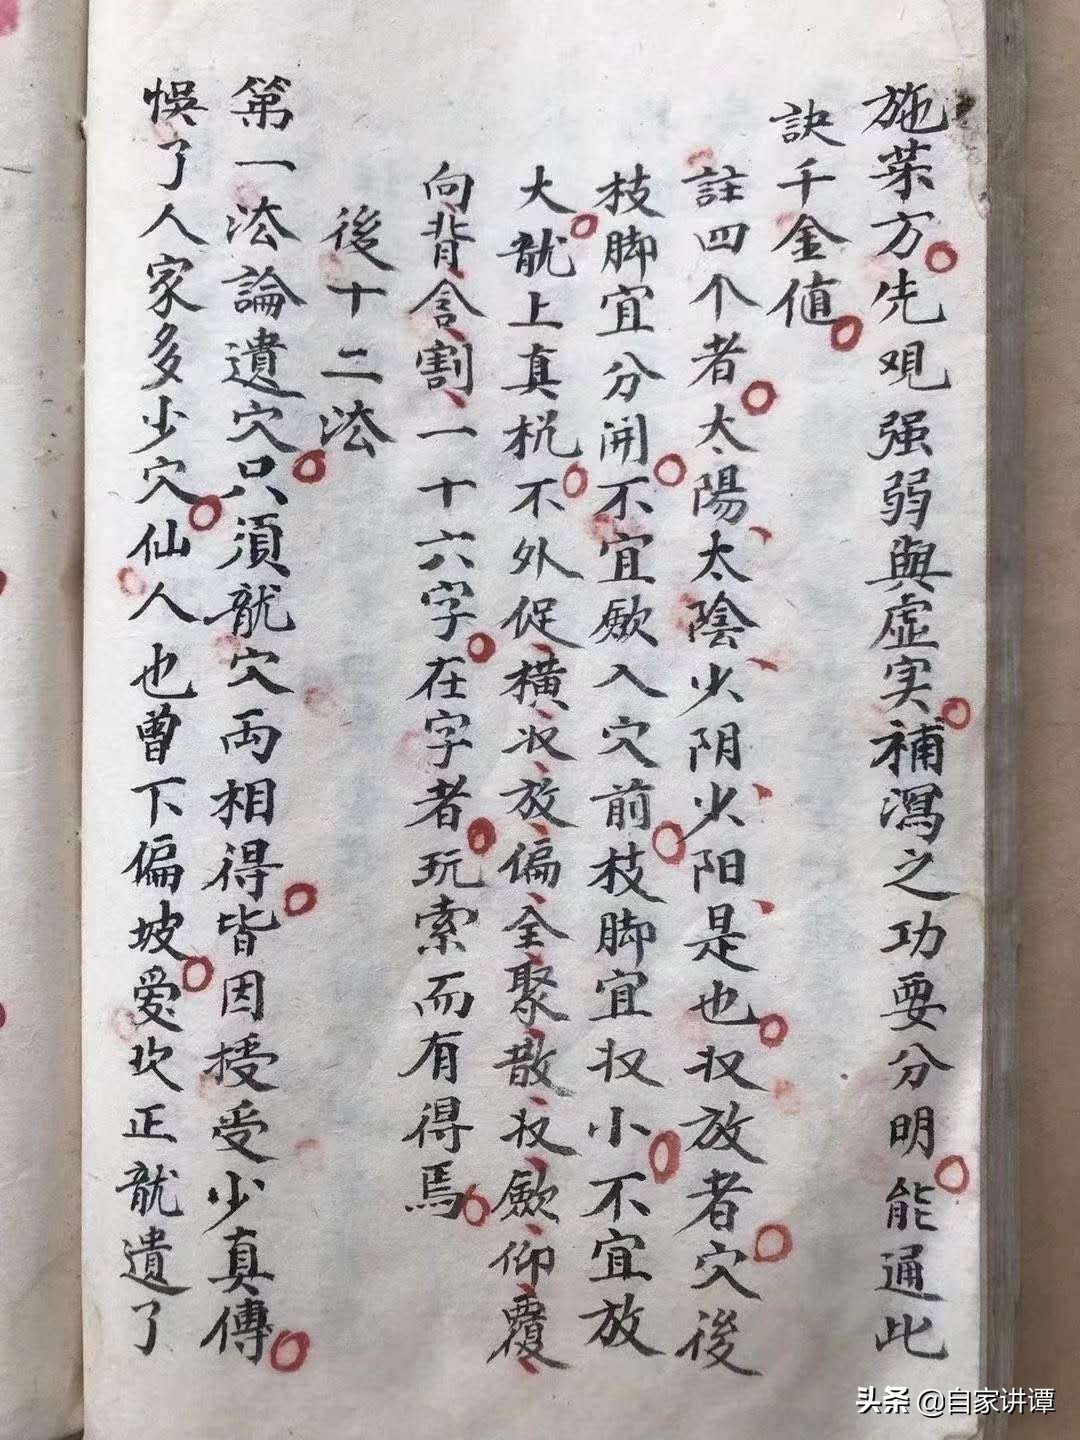 施茱方先观强弱與虚实補瀉之功要分明能通此
訣千金値
註四个者太陽太陰少阴少阳是也収放者穴後
枝脚宜分開不宜歛入穴前枝脚宜収小不宜放
大龍上真梲不外促横収放偏全聚散収歛仰覆
向背含割一十六字在字者玩索而有得焉
後十二法
第一法論遺穴只須龍穴両相得皆因授受少真傳
悮了人家多少穴仙人也曾下偏坡爱坎正龍遺了
头条 @自家讲谭